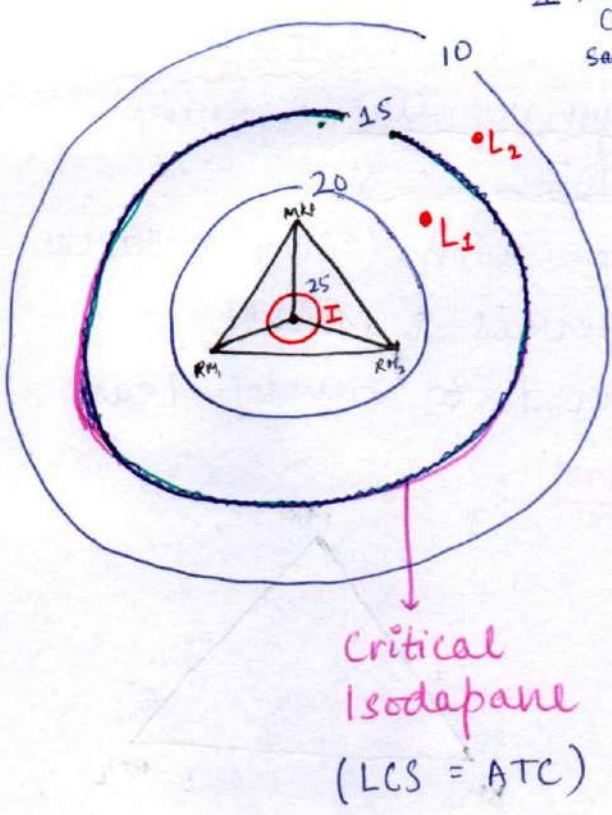 10
15
L2
20
Mkt
L1
25
I
RM1
RM2
Critical
Isodapane
(LCS = ATC)